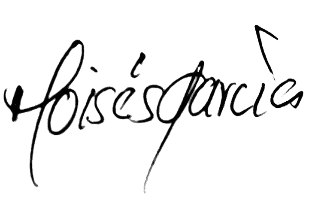 Moisés García